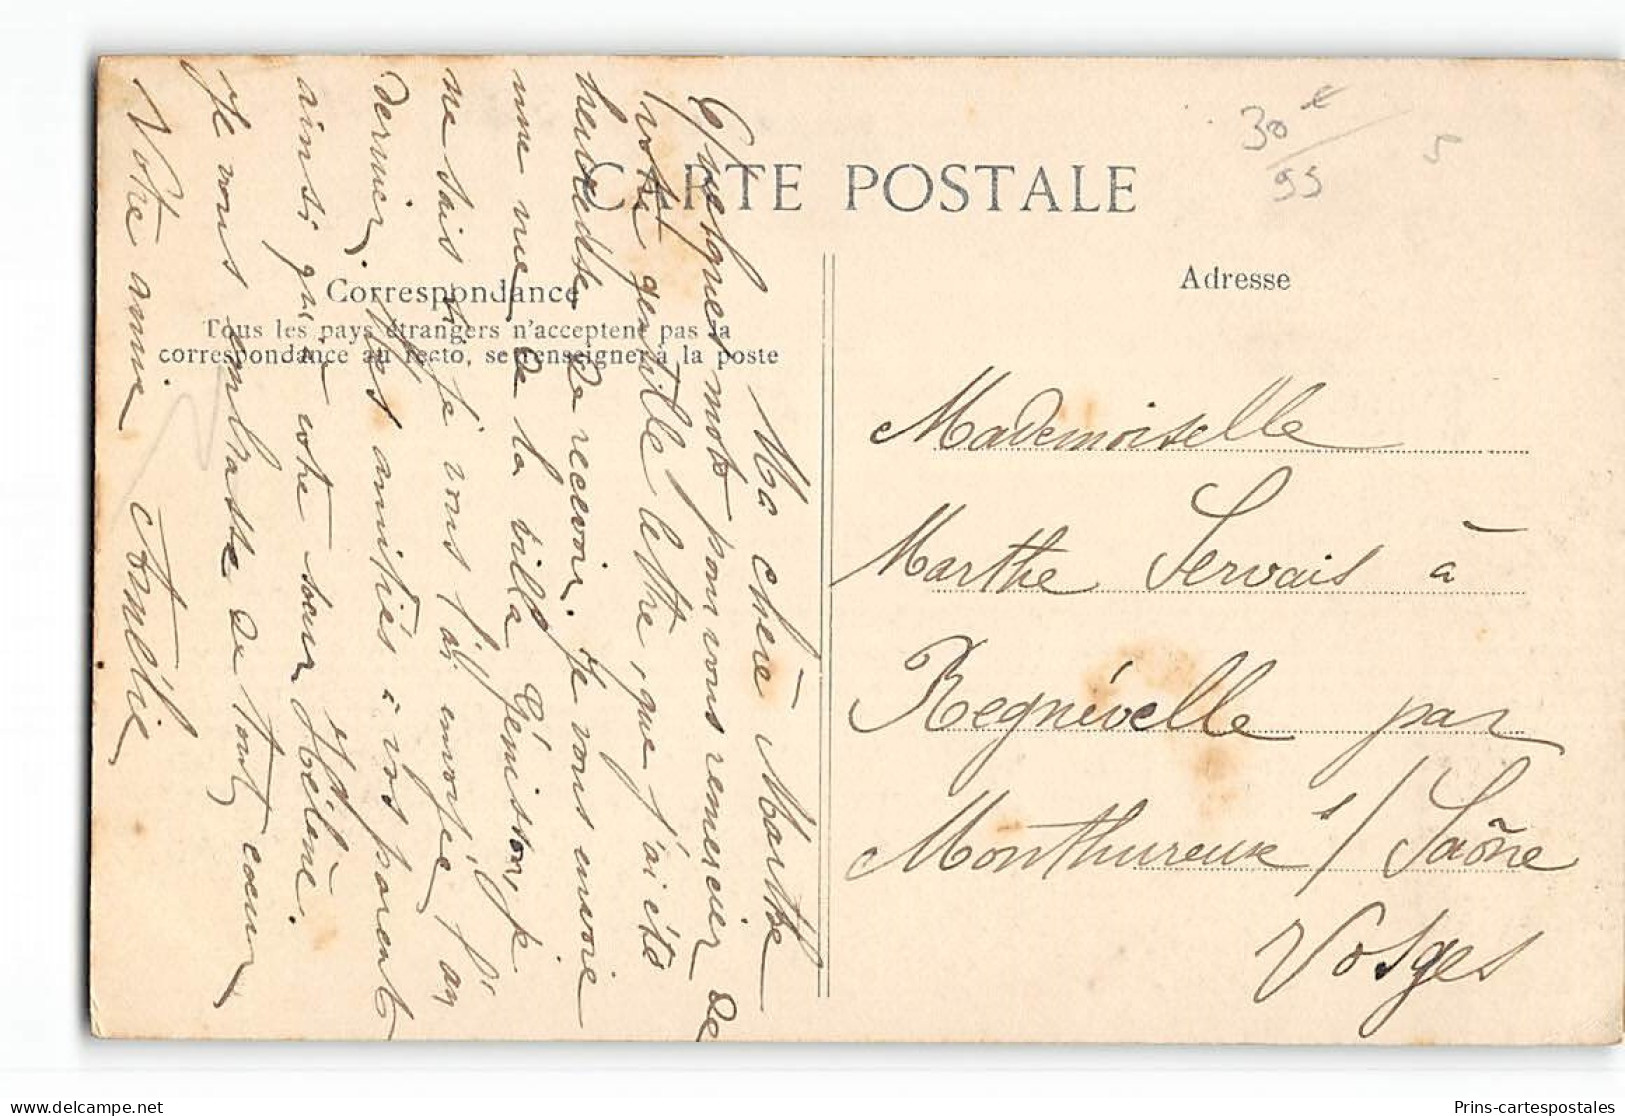 CARTE POSTALE
Correspondance
Tous les pays étrangers n'acceptent pas la
correspondance au recto, se renseigner à la poste
Adresse
Ma chère Marthe
Quelques mots pour vous remercier de
votre gentille lettre, que j'ai été
heureuse de recevoir. Je vous envoie
une vue de la villa Génison, je
ne sais si je vous l'ai envoyée l'an
dernier. Mes amitiés à vos parents
ainsi qu'à votre sœur Hélène.
Je vous embrasse de tout cœur
Votre amie Amélie
Mademoiselle
Marthe Servais à
Regnévelle par
Monthureux s/ Saône
Vosges
30 €
95
5
Prins-cartespostales.com